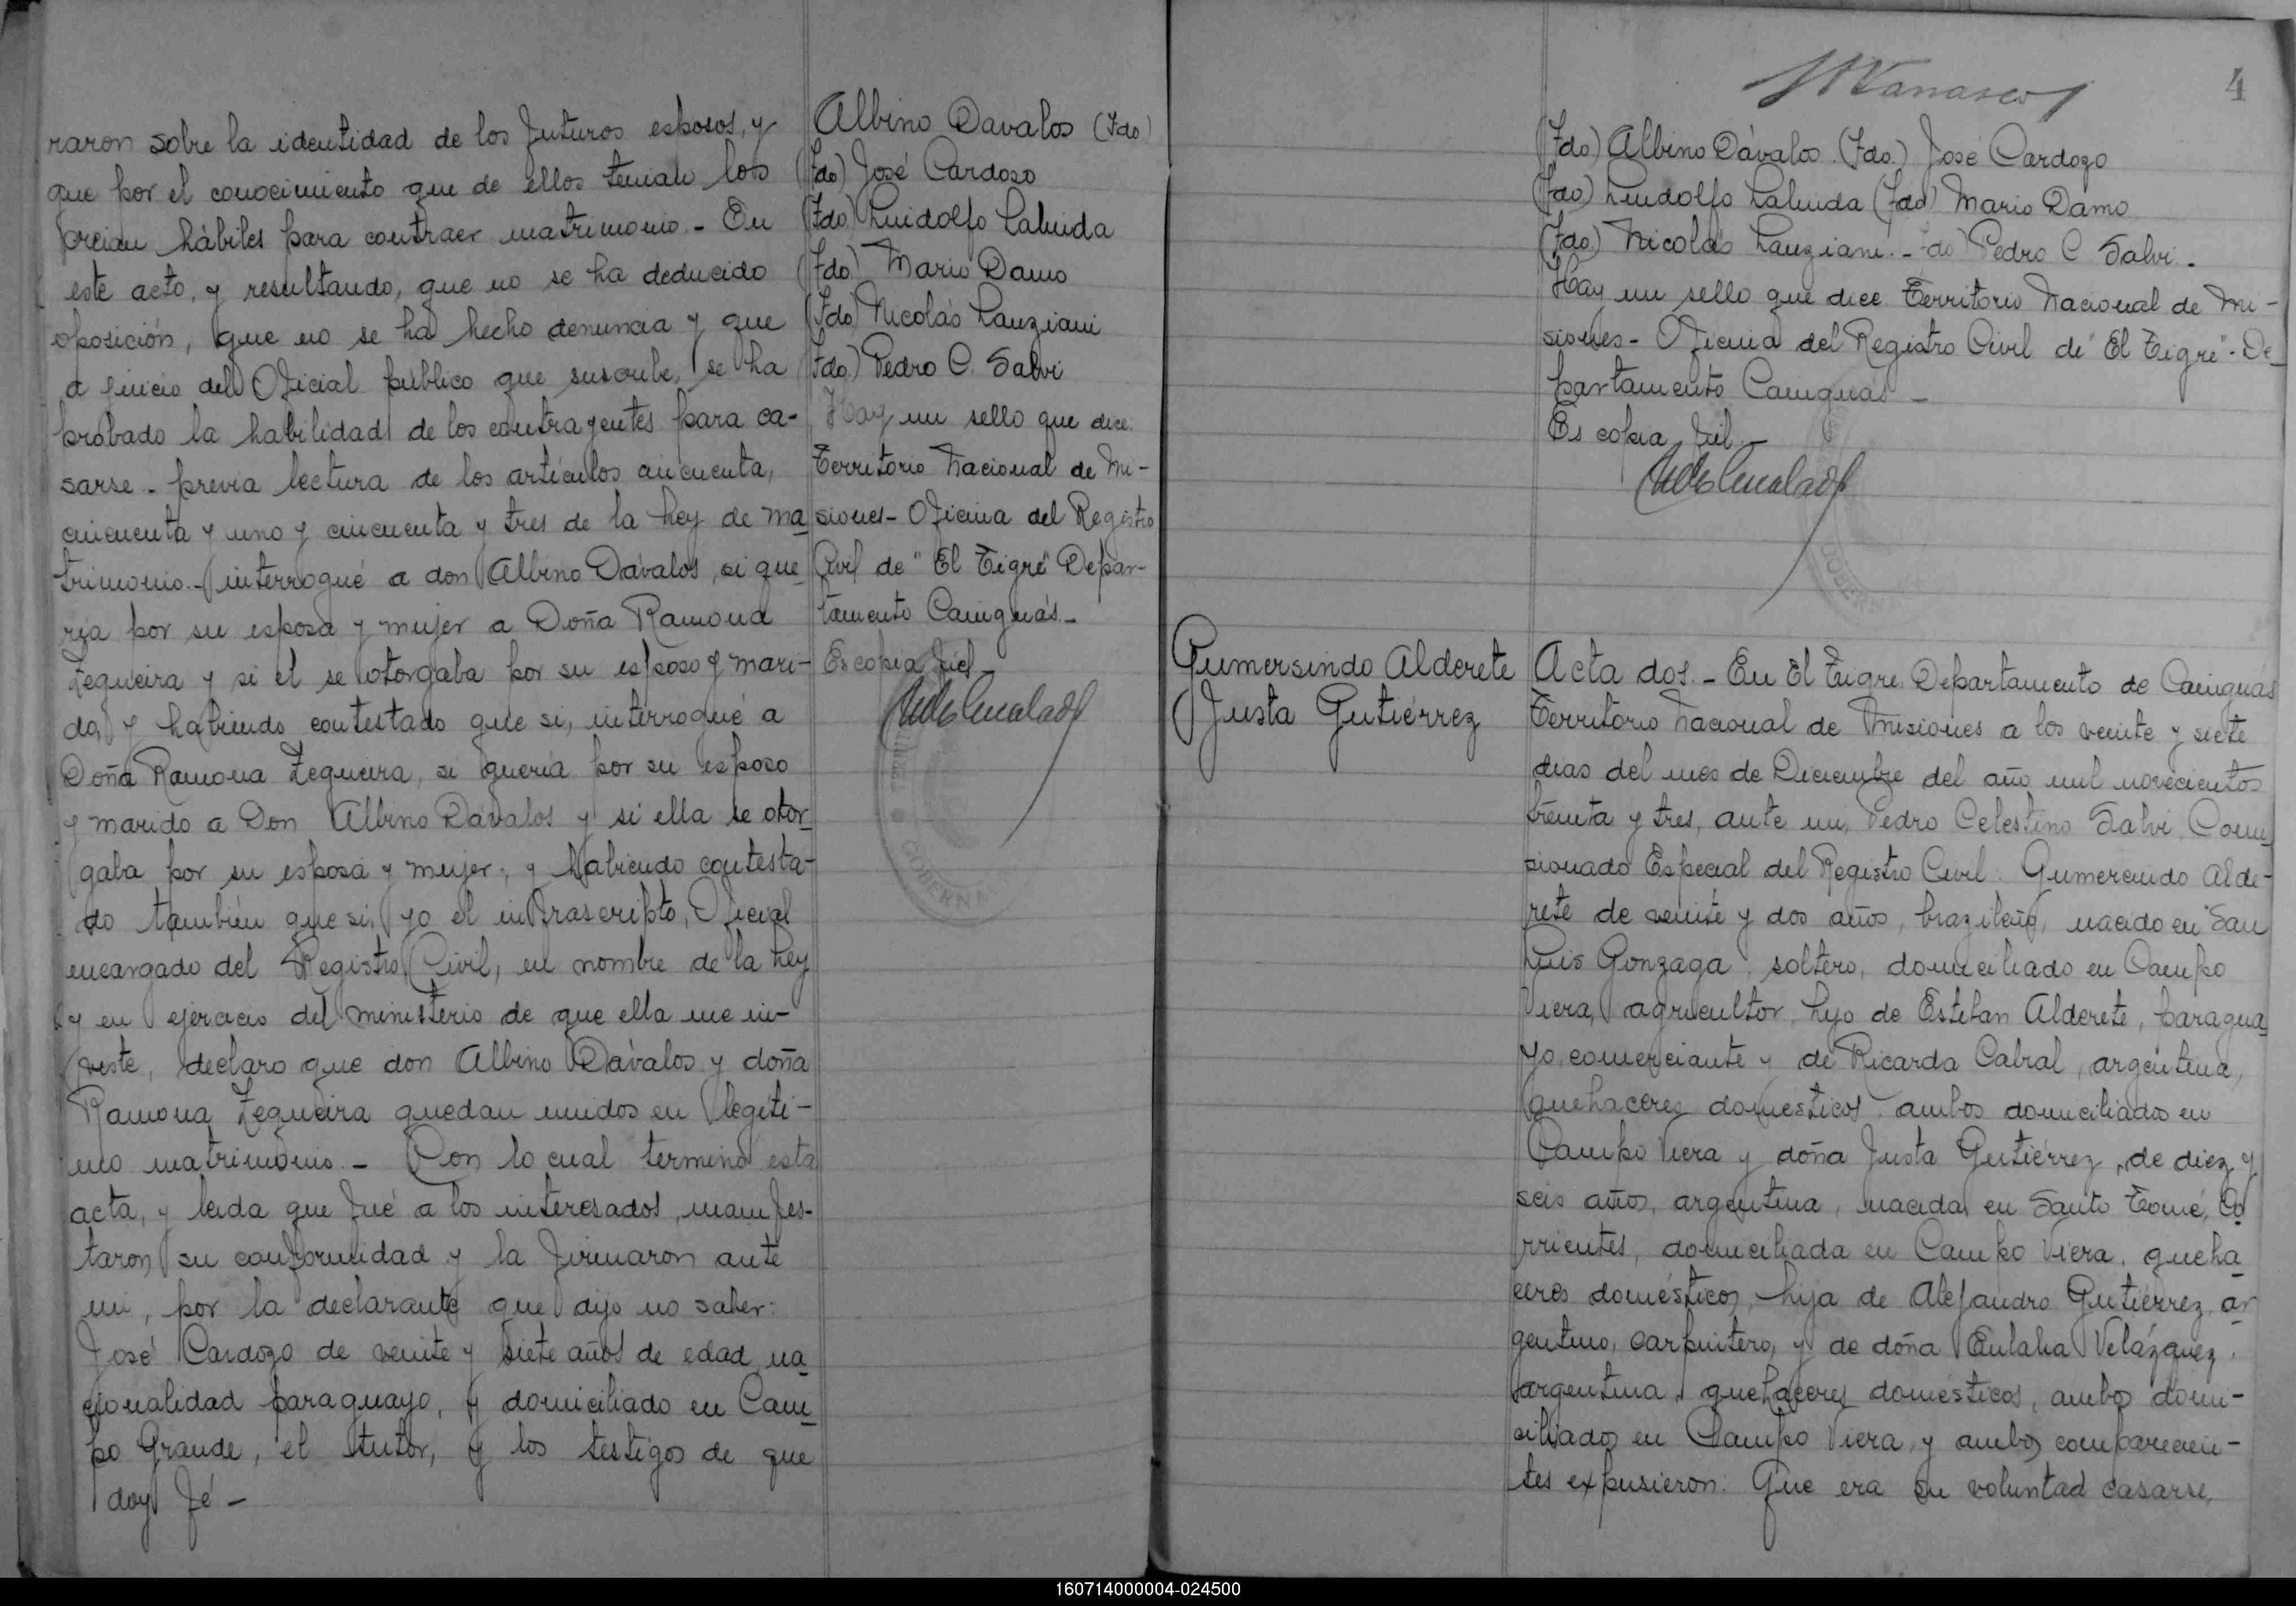 raron sobre la identidad de los futuros esposos, y
que por el conocimiento que de ellos tenian los
creian hábiles para contraer matrimonio. - En
este acto, y resultando, que no se ha deducido
oposición, que no se ha hecho denuncia y que
a juicio del Oficial público que suscribe, se ha
probado la habilidad de los contrayentes para ca-
sarse - previa lectura de los artículos cincuenta,
cincuenta y uno y cincuenta y tres de la Ley de ma
trimonio. - interrogué a don Albino Dávalos, si que
ria por su esposa y mujer a Doña Ramona
Zequeira y si el se otorgaba por su esposo y mari-
do, y habiendo contestado que si, interrogué a
Doña Ramona Zequeira, si quería por su esposo
y marido a Don Albino Dávalos y si ella se otor
gaba por su esposa y mujer; y habiendo contesta-
do también que si, yo el infrascripto, Oficial
encargado del Registro Civil, en nombre de la Ley
y en ejercicio del ministerio de que ella me in-
viste, declaro que don Albino Dávalos y doña
Ramona Zequeira quedan unidos en legiti-
mo matrimonio. - Con lo cual terminó esta
acta, y leida que fué a los interesados, manifes-
taron su conformidad y la firmaron ante
mi, por la declarante que dijo no saber:
José Cardozo de veinte y siete años de edad, na
cionalidad paraguayo, y domiciliado en Cam
po Grande, el tutor, y los testigos de que
doy fé -
Albino Davalos (Fdo)
(Fdo) José Cardoso
(Fdo) Luidolfo
(Fdo) Mario Damo
(Fdo) Nicolás Lanziani
(Fdo.) Pedro C. Salvi
Hay un sello que dice:
Territorio Nacional de Mi-
siones - Oficina del Registro
Civil de "El Tigre" Depar-
tamento Cainguás. -
Es copia fiel -
GOBERN
4
(Fdo) Albino Dávalos. (Fdo.) José Cardozo
(Fdo) (Fdo) Mario Damo
(Fdo.) Nicolás Lanziani. - Fdo) Pedro C Salvi. -
Hay un sello que dice Territorio Nacional de Mi-
siones - Oficina del Registro Civil de "El Tigre" - De
partamento Cainguás -
Es copia fiel. -
GOBERN
Gumersindo Alderete
Justa Gutiérrez
Acta dos. - En El Tigre Departamento de Cainguás
Territorio Nacional de Misiones a los veinte y siete
dias del mes de Diciembre del año mil novecientos
treinta y tres, ante mi, Pedro Celestino Salvi, Comi
sionado Especial del Registro Civil. Gumercindo Alde-
rete de veinte y dos años, brazileño, nacido en San
Luis Gonzaga, soltero, domiciliado en Campo
Viera, agricultor, hijo de Esteban Alderete, paragua
yo, comerciante y de Ricarda Cabral, argentina,
quehaceres domésticos, ambos domiciliados en
Campo Viera y doña Justa Gutiérrez, de diez y
seis años, argentina, nacida en Santo Tomé, Co
rrientes, domiciliada en Campo Viera, queha
ceres domésticos, hija de Alejandro Gutiérrez, ar
gentino, carpintero, y de doña Eulalia Velázquez,
argentina, quehaceres domésticos, ambos domi-
ciliados en Campo Viera, y ambos comparecien-
tes expusieron: Que era su voluntad casarse,
160714000004-024500